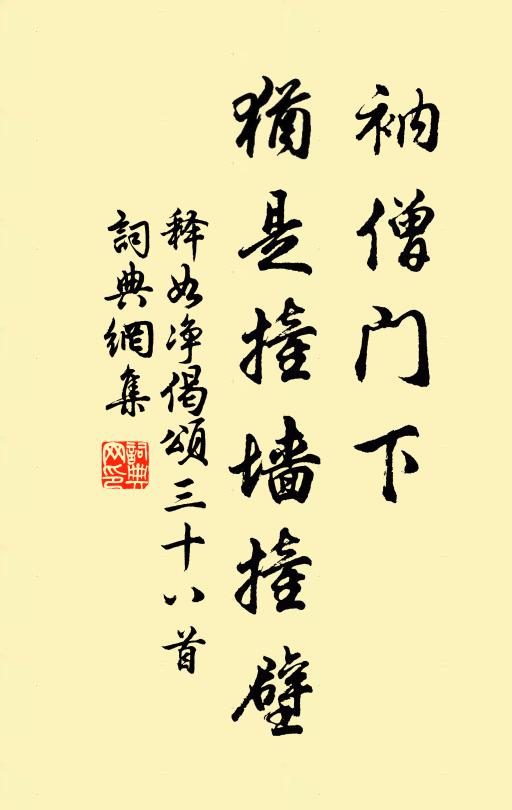 衲僧门下
犹是撞墙撞壁
释如净偈颂三十八首
词典網集
詞典网印